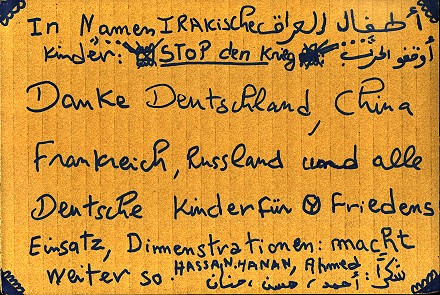 In Namen IRAKische أطفال العراق
Kinder: STOP den Krieg أوقفو الحرب
Danke Deutschland, China
Frankreich, Russland und alle
Deutsche Kinder für Friedens
Einsatz, Dimenstrationen: macht
weiter so HASSAN, HANAN, Ahmed شكراً: أحمد، حسن، حنان